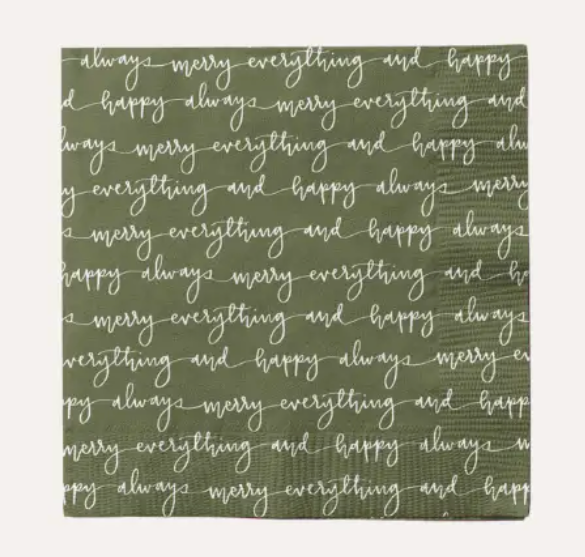 always merry everything and happy
d happy always merry everything and
lways merry everything and happy alw
y everything and happy always merry
s merry everything and happy always
happy always merry everything and ha
s merry everything and happy always
verything and happy always merry ev
ppy always merry everything and happ
merry everything and happy always m
ppy always merry everything and happ